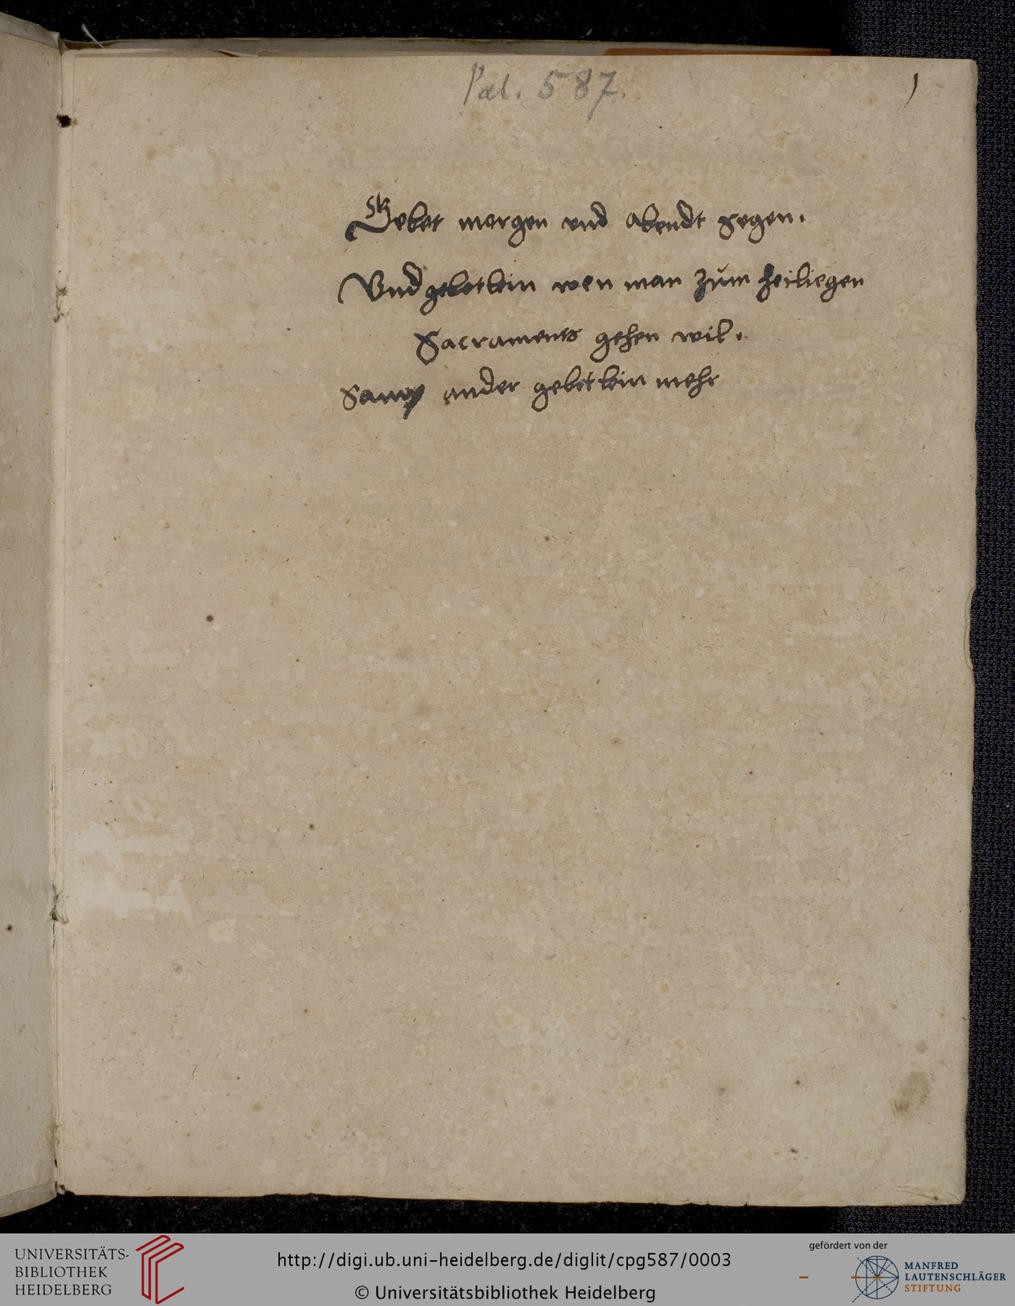 Pal. 587.
1
Gebet morgen vnd Abendt segen.
Vnd gebetlein wen man zům heiliegen
Sacraments gehen wil.
Samp ander gebetlein mehr
UNIVERSITÄTS-
BIBLIOTHEK
HEIDELBERG
http://digi.ub.uni-heidelberg.de/diglit/cpg587/0003
© Universitätsbibliothek Heidelberg
gefördert von der
MANFRED
LAUTENSCHLÄGER
STIFTUNG